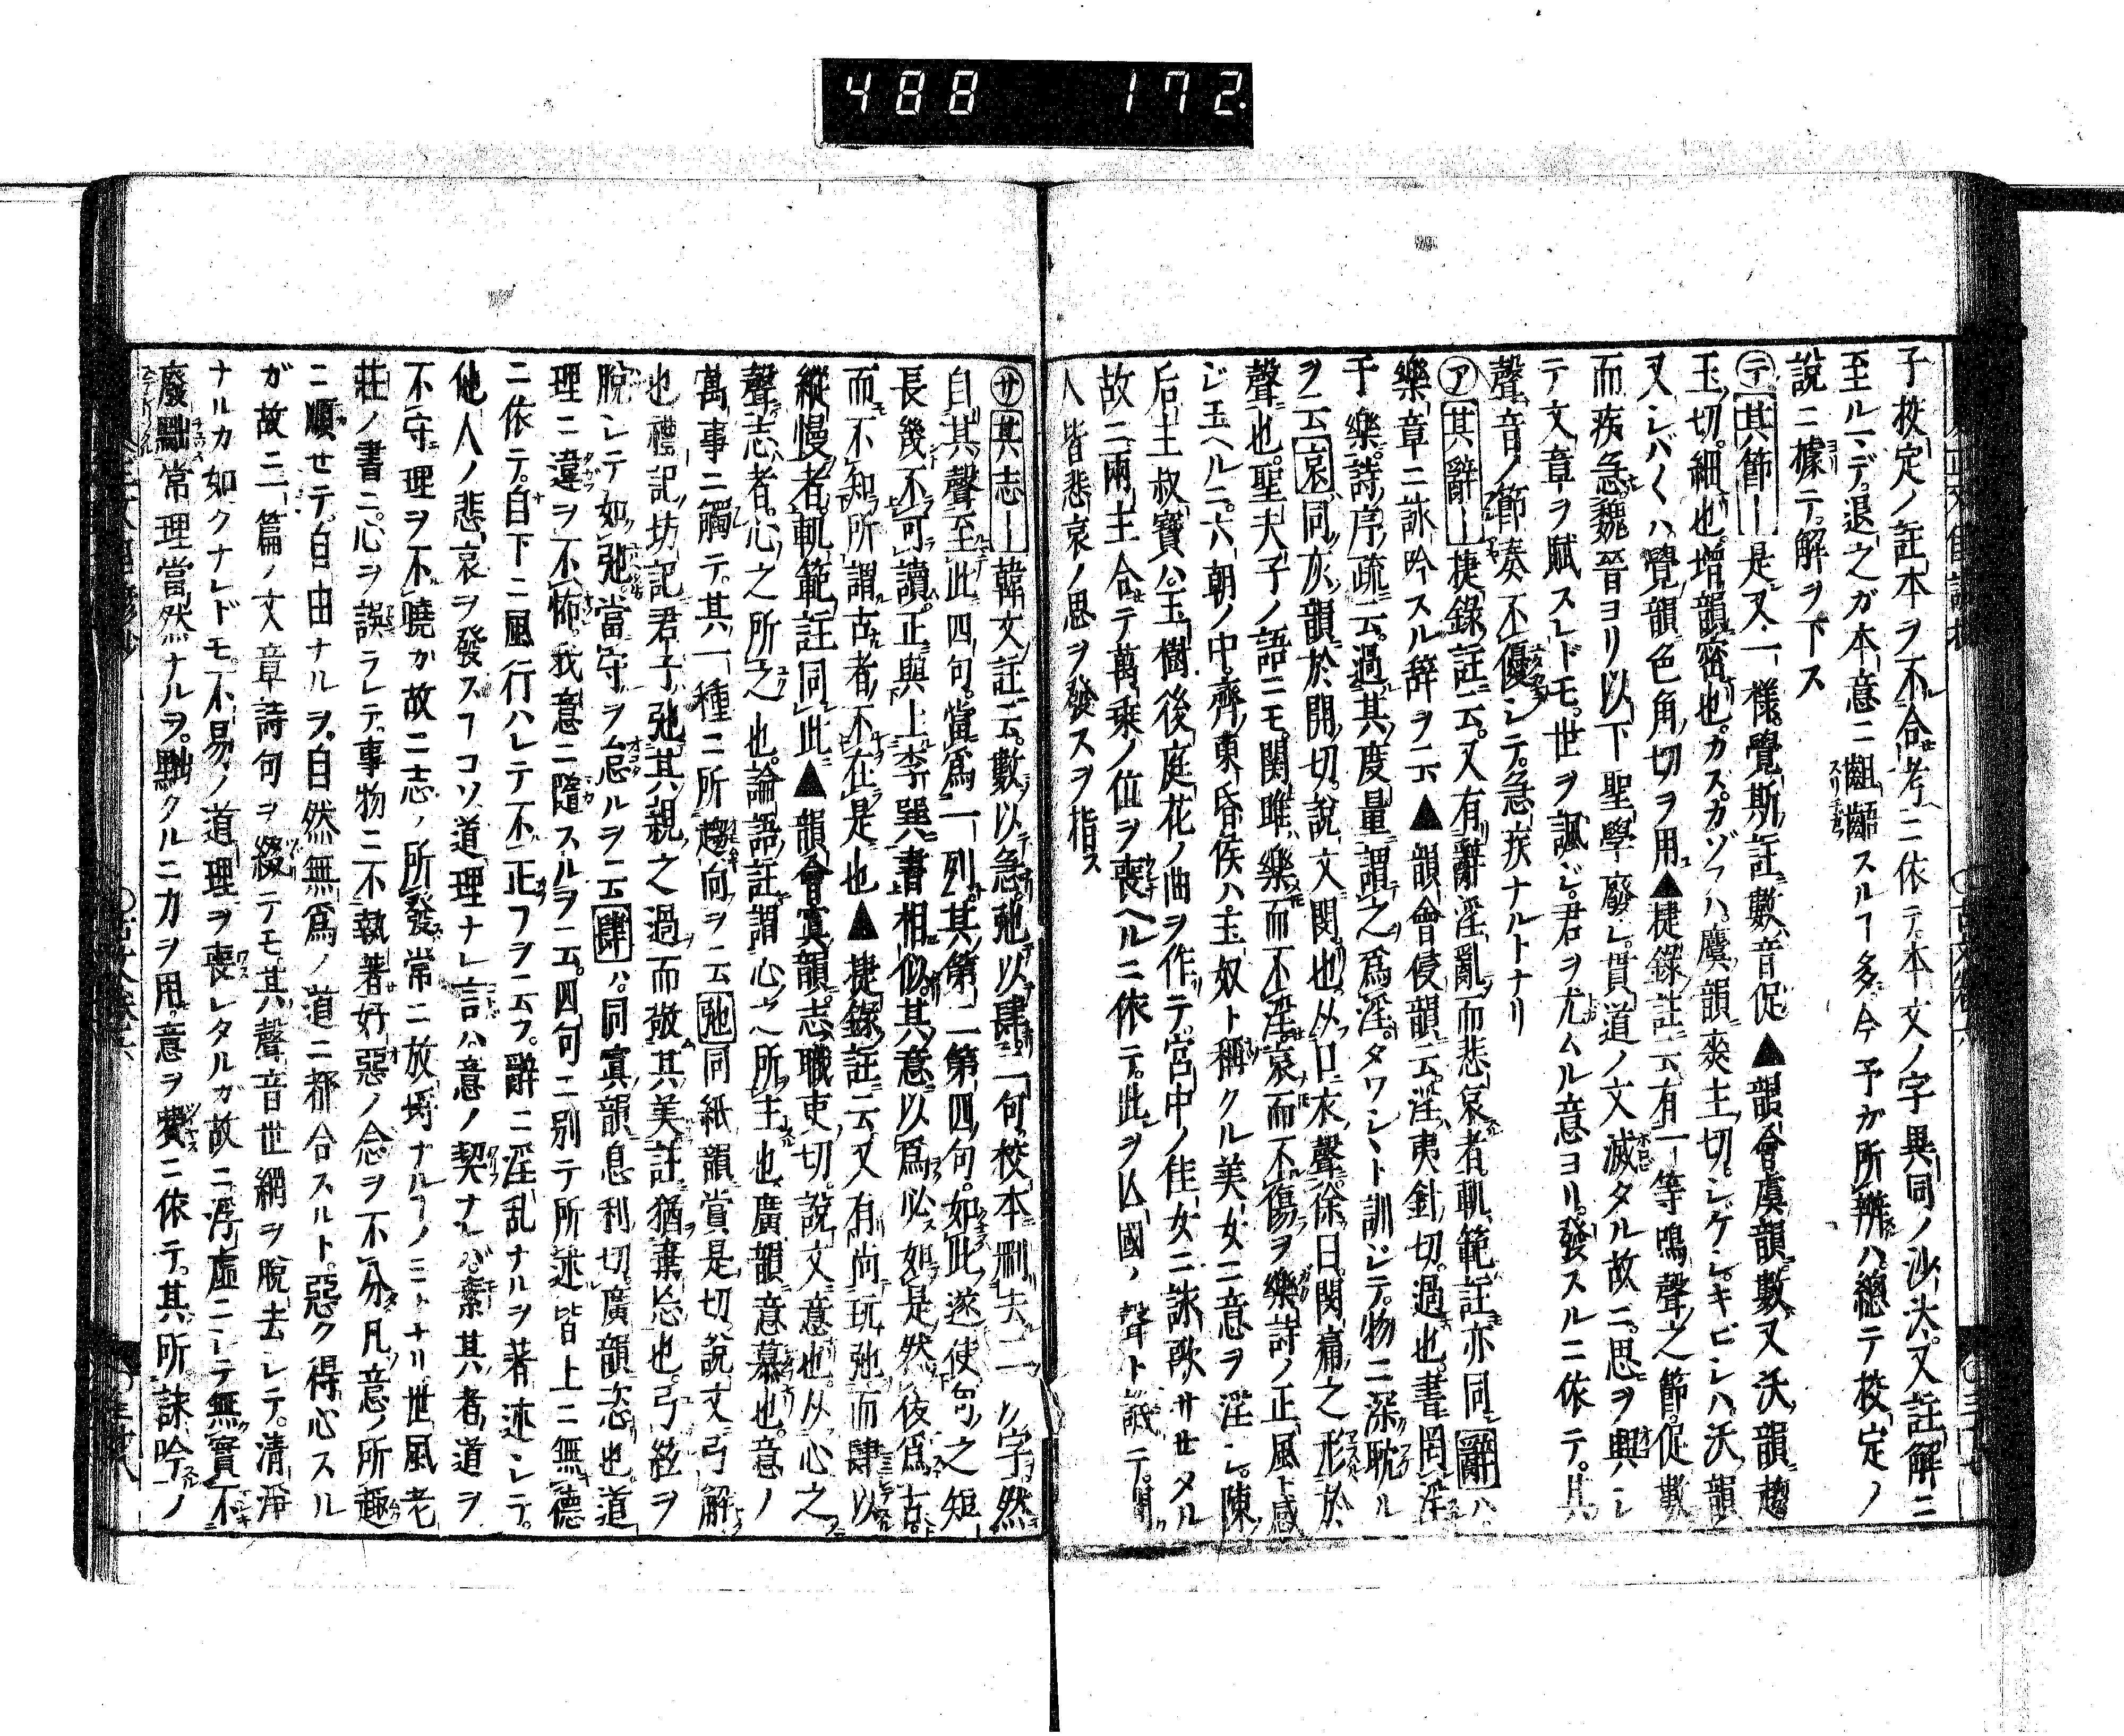 488 172.
子校定ノ註本ヲ不合考ニ依テ本文ノ字異同ノ沙汰又註解ニ
至ルマデ退之ガ本意ニ齟齬スルヿ多今予ガ所辨ハ總テ校定ノ
說ニ據テ解ヲ下ス
㋢其節―是又一樣覺斯註數音促▲韻會虞韻數又沃韻趨
玉切細也增韻密也カスカゾフハ麌韻爽主切シゲシキビシハ沃韻
又シバ〱ハ覺韻色角切ヲ用▲捷錄註云有一等鳴聲之節促數
而疾急魏晉ヨリ以下聖學廢レ貫道ノ文滅タル故ニ思ヲ興シ
テ文章ヲ賦スレドモ世ヲ諷ジ君ヲ尤ムル意ヨリ發スルニ依テ其
聲音ノ節奏不優シテ急疾ナルトナリ
㋐其辭―捷錄註云又有辭淫亂而悲哀者軌範註亦同辭ハ
樂章ニ詠吟スル辞ヲ云▲韻會侵韻云淫夷針切過也書罔淫
于樂詩序疏云過其度量謂之爲淫タワシヽト訓ジテ物ニ深耽ル
ヲ云哀同灰韻於開切說文閔也从口衣聲徐曰閔痛之形於
聲也聖夫子ノ語ニモ關雎樂而不淫哀而不傷ヲ樂詩ノ正風ト感
ジ玉ヘルニ六朝ノ中齊東昏侯ハ玉奴ト稱クル美女ニ意ヲ淫シ陳
后主叔寶ハ玉樹後庭花ノ曲ヲ作テ宮中ノ佳女ニ詠歌サセタル
故ニ兩主合テ萬乘ノ位ヲ喪ヘルニ依テ此ヲ亡國ノ聲ト誡テ聞
人皆悲哀ノ思ヲ發スヲ指ス
㋚其志―韓文註云數以急弛以肆二句校本刪去二以字然
自其聲至此四句當爲一列其第二第四句如此遂使句之短
長幾不可讀正與上李巽書相似其意以爲必如是然後爲古
而不知所謂古者不在是也▲捷錄註云又有尚玩弛而肆以
縱慢者軌範註同此▲韻會寘韻志職吏切說文意也从心之
聲志者心之所之也論語註謂心之所主也廣韻意慕也意ノ
萬事ニ觸テ其一種ニ所趨向ヲ云弛同紙韻賞是切說文弓解
也禮記坊記君子弛其親之過而敬其美註猶棄忘也弓絃ヲ
脫レテ如弛當守ヲ忘ルヲ云肆ハ同寘韻息利切廣韻恣也道
理ニ違ヲ不怖我意ニ隨スルヲ云四句ニ別テ所述皆上ニ無德
ニ依テ自下ニ風行ハレテ不正フヲ云フ辭ニ淫乱ナルヲ著述シテ
他人ノ悲哀ヲ發スヿコソ道理ナレ言ハ意ノ契ナレバ素其者道ヲ
不守理ヲ不曉カ故ニ志ノ所發常ニ放埓ナルヿノミトナリ世風老
莊ノ書ニ心ヲ誤ラレテ事物ニ不執著好惡ノ念ヲ不分凡意ノ所趣
ニ順セテ自由ナルヲ自然無爲ノ道ニ都合スルト惡ク得心スル
ガ故ニ一篇ノ文章詩句ヲ綴テモ其聲音世綱ヲ脫去レテ清淨
ナルカ如クナレドモ不易ノ道理ヲ喪レタルガ故ニ浮虛ニシテ無實不
廢黜常理當然ナルヲ黜クルニ力ヲ用意ヲ費ニ依テ其所詠吟ノ